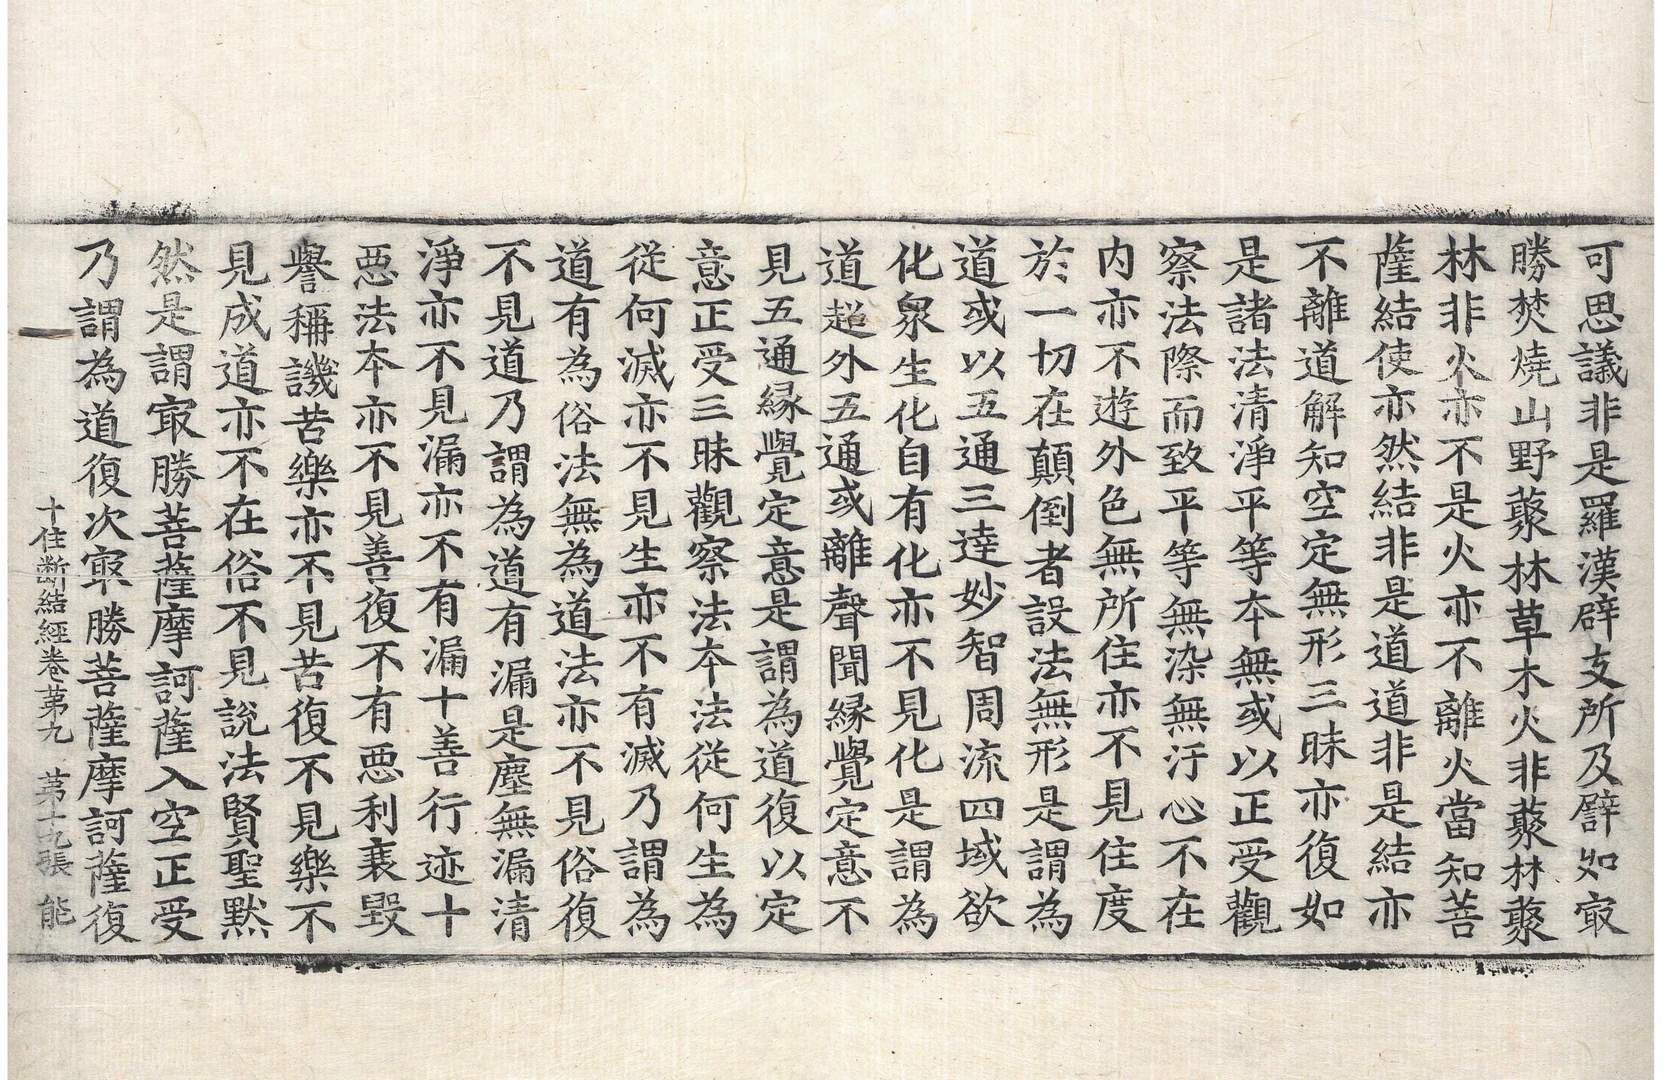 可思議非是羅漢辟支所及譬如㝡
勝焚燒山野藂林草木火非藂林藂
林非火亦不是火亦不離火當知菩
薩結使亦然結非是道道非是結亦
不離道解知空定無形三昧亦復如
是諸法清淨平等本無或以正受觀
察法際而致平等無染無汙心不在
内亦不遊外色無所住亦不見住度
於一切在顛倒者設法無形是謂為
道或以五通三達妙智周流四域欲
化衆生化自有化亦不見化是謂為
道超外五通或離聲聞縁覺定意不
見五通縁覺定意是謂為道復以定
意正受三昧觀察法本法從何生為
從何滅亦不見生亦不有滅乃謂為
道有為俗法無為道法亦不見俗復
不見道乃謂為道有漏是塵無漏清
淨亦不見漏亦不有漏十善行迹十
惡法本亦不見善復不有惡利衰毀
譽稱譏苦樂亦不見苦復不見樂不
見成道亦不在俗不見說法賢聖默
然是謂㝡勝菩薩摩訶薩入空正受
乃謂為道復次㝡勝菩薩摩訶薩復
十住斷結經卷苐九 苐十九張 能